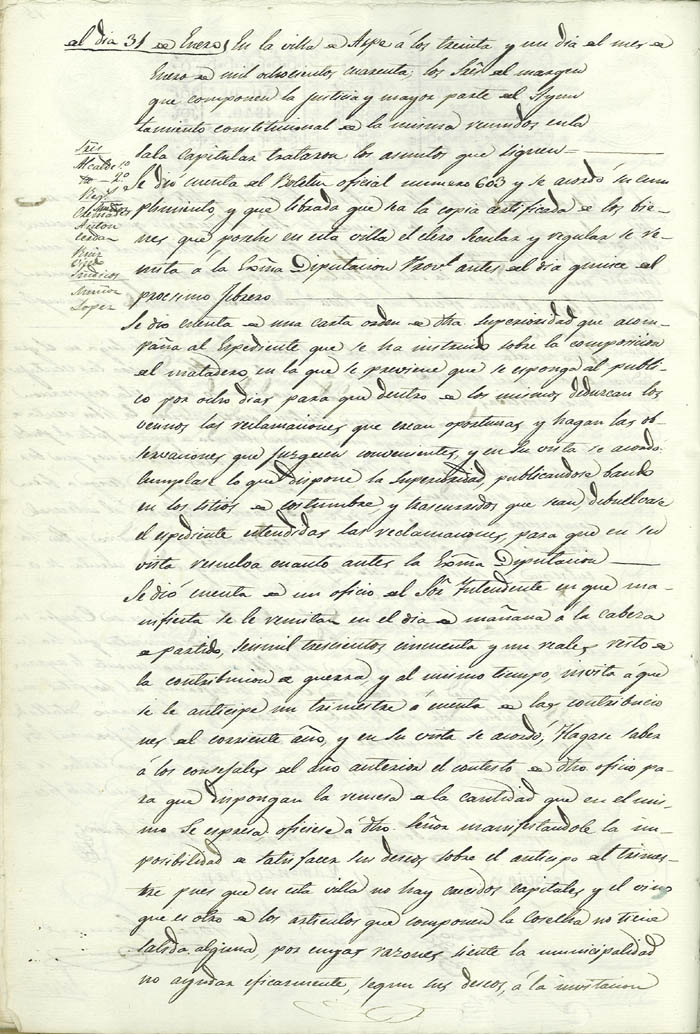 al dia 31 de Enero, En la villa de Aspe á los treinta y un dia del mes de
Enero de mil ochocientos cuarenta, los Sres del margen
que componen la Justicia y mayor parte del Ayun
tamiento constitucional de la misma reunidos en la
sala capitular trataron los asuntos que siguen=
Sres
Alcalde
2º
Reg.s
Cremades
Anton
Cerdan
Ruiz
Sindicos
Muñoz
Lopez
Se dio cuenta del Boletin oficial numero 603 y se acordó su cum
plimiento, y que librada que sea la copia certificada de los bie-
nes que posehe en esta villa el clero Secular y regular se re-
mita á la Exma Diputacion Provl. antes del dia quince del
procsimo febrero
Se dio cuenta de una carta orden de dha Superioridad que acom-
paña al Espediente que se ha instruido sobre la composicion
del matadero en la que se previene que se esponga al publi-
co por ocho dias para que dentro de los mismos deduzcan los
vecinos las reclamaciones que crean oportunas y hagan las ob-
servaciones que juzguen convenientes, y en su vista se acordó:
Cumplase lo que dispone la Superioridad, publicandose bando
en los sitios de costumbre y trascurridos que sean, debuelvase
el espediente estendidas las reclamaciones, para que en su
vista resuelva cuanto antes la Exma Diputacion
Se dió cuenta de un oficio del Sor Intendente en que ma-
nifiesta se le remitan en el dia de mañana á la cabeza
de partido, seis mil trescientos cincuenta y un reales resto de
la contribucion de guerra, y al mismo tiempo, invita á que
se le anticipe un trimestre á cuenta de las contribucio
nes del corriente año, y en su vista se acordó, Hagase saber
á los consejales del año anterior el contesto de dho oficio pa-
ra que dispongan la remesa de la cantidad que en el mis-
mo se espresa oficiese á dho. Señor manifestandole la im-
posibilidad de satisfacer sus deseos sobre el anticipo del trimes-
tre pues que en esta villa no hay crecidos capitales y el vino
que es otro de los articulos que componen la Cosecha no tiene
salida alguna, por cuyas razones siente la municipalidad
no ayudar eficazmente, segun sus deseos, á la invitacion